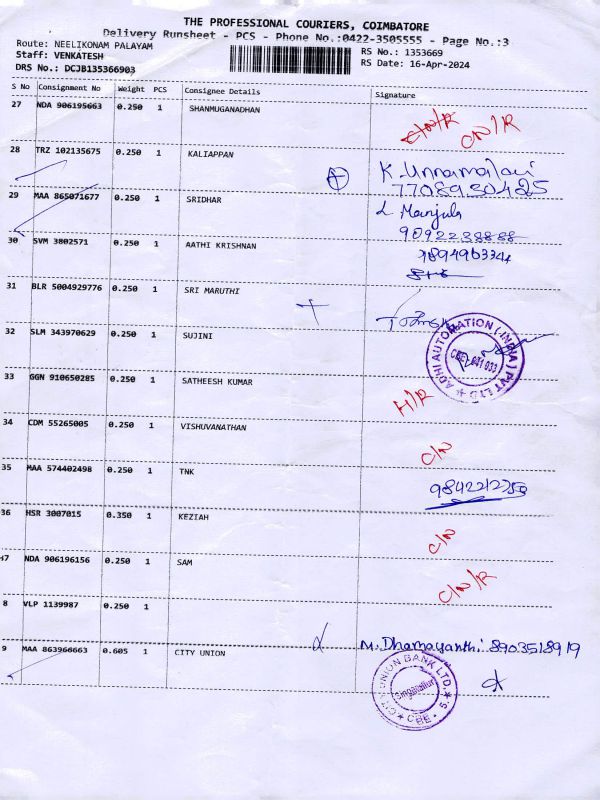 THE PROFESSIONAL COURIERS, COIMBATORE
Delivery Runsheet - PCS - Phone No.:0422-3505555 - Page No.:3
Route: NEELIKONAM PALAYAM
Staff: VENKATESH
DRS No.: DCJB135366903
RS No.: 1353669
RS Date: 16-Apr-2024
S No Consignment No Weight PCS Consignee Details Signature
27 NDA 906195663 0.250 1 SHANMUGANADHAN C/N/R CN/R
28 TRZ 102135675 0.250 1 KALIAPPAN K. Unnamalai
7708930425
29 MAA 865071677 0.250 1 SRIDHAR Manjula
9092238888
30 SVM 3802571 0.250 1 AATHI KRISHNAN 9894963344
31 BLR 5004929776 0.250 1 SRI MARUTHI
32 SLM 343970629 0.250 1 SUJINI
ADHI AUTOMATION (INDIA) PVT LTD
CBE 641 033
33 GGN 910650285 0.250 1 SATHEESH KUMAR H/R
34 CDM 55265005 0.250 1 VISHUVANATHAN C/N
35 MAA 574402498 0.250 1 TNK
36 HSR 3007015 0.350 1 KEZIAH C/N
47 NDA 906196156 0.250 1 SAM C/N/R
8 VLP 1139987 0.250 1
9 MAA 863966663 0.605 1 CITY UNION M. Dhamayanthi 8903518919
CITY UNION BANK LTD.
Singanallur
CBE - 5.